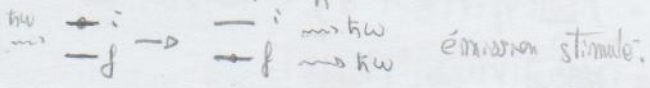 ħω i → i ħω
f f ħω émission stimulé.